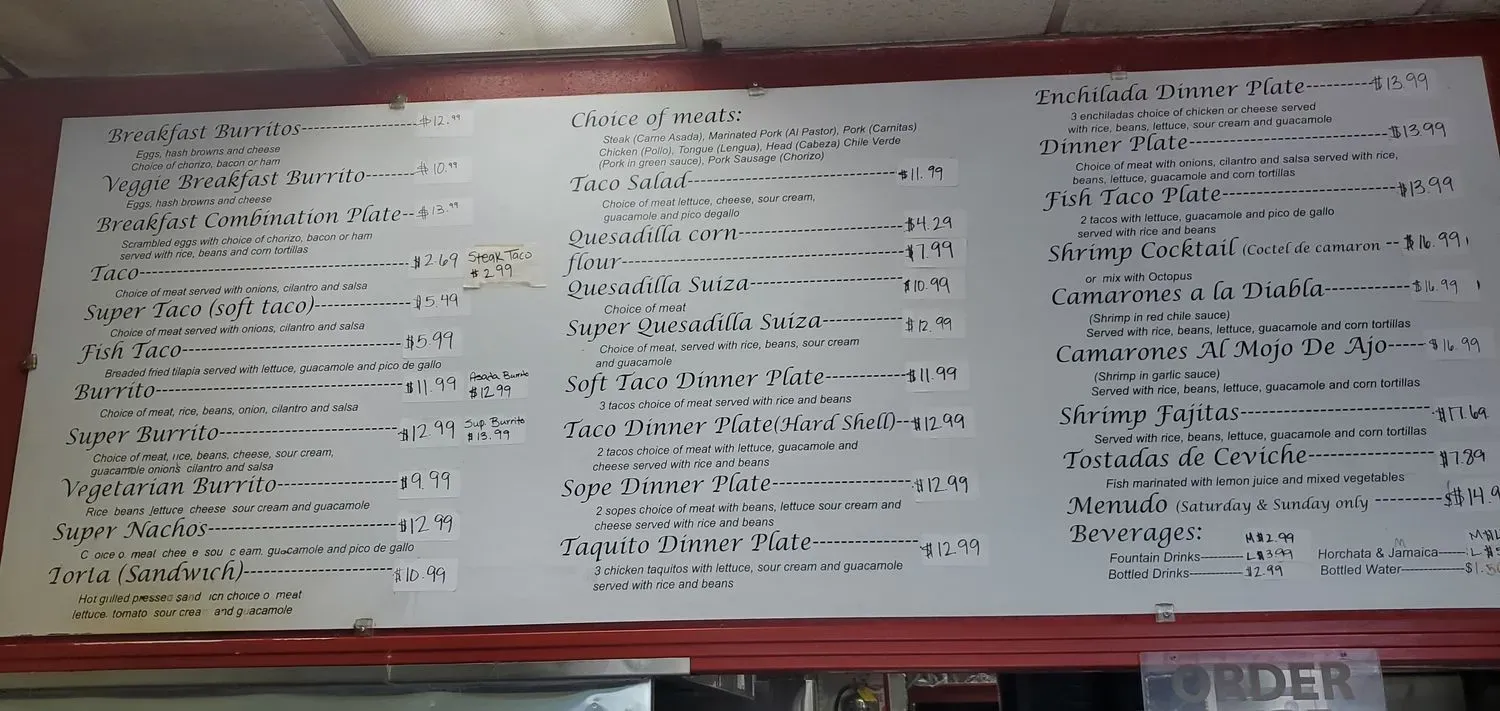 Breakfast Burritos---------------$12.99
Eggs, hash browns and cheese
Choice of chorizo, bacon or ham
Veggie Breakfast Burrito-------$10.99
Eggs, hash browns and cheese
Breakfast Combination Plate--$13.99
Scrambled eggs with choice of chorizo, bacon or ham
served with rice, beans and corn tortillas
Taco--------------------------------$2.69 Steak Taco
$2.99
Choice of meat served with onions, cilantro and salsa
Super Taco (soft taco)-----------$5.49
Choice of meat served with onions, cilantro and salsa
Fish Taco---------------------------$5.99
Breaded fried tilapia served with lettuce, guacamole and pico de gallo
Burrito------------------------------$11.99 Asada Burrito
$12.99
Choice of meat, rice, beans, onion, cilantro and salsa
Super Burrito----------------------$12.99 Sup. Burrito
$13.99
Choice of meat, rice, beans, cheese, sour cream,
guacamole onions cilantro and salsa
Vegetarian Burrito---------------$9.99
Rice beans lettuce cheese sour cream and guacamole
Super Nachos----------------------$12.99
guacamole and pico de gallo
Torta (Sandwich)-----------------$10.99
Hot grilled meat
lettuce. tomato sour and guacamole
Choice of meats:
Steak (Carne Asada), Marinated Pork (Al Pastor), Pork (Carnitas)
Chicken (Pollo), Tongue (Lengua), Head (Cabeza) Chile Verde
(Pork in green sauce), Pork Sausage (Chorizo)
Taco Salad--------------------------$11.99
Choice of meat lettuce, cheese, sour cream,
guacamole and pico degallo
Quesadilla corn--------------------$4.29
flour---------------------------------$7.99
Quesadilla Suiza------------------$10.99
Choice of meat
Super Quesadilla Suiza---------$12.99
Choice of meat, served with rice, beans, sour cream
and guacamole
Soft Taco Dinner Plate----------$11.99
3 tacos choice of meat served with rice and beans
Taco Dinner Plate(Hard Shell)--$12.99
2 tacos choice of meat with lettuce, guacamole and
cheese served with rice and beans
Sope Dinner Plate-----------------$12.99
2 sopes choice of meat with beans, lettuce sour cream and
cheese served with rice and beans
Taquito Dinner Plate-------------$12.99
3 chicken taquitos with lettuce, sour cream and guacamole
served with rice and beans
Enchilada Dinner Plate---------$13.99
3 enchiladas choice of chicken or cheese served
with rice, beans, lettuce, sour cream and guacamole
Dinner Plate------------------------$13.99
Choice of meat with onions, cilantro and salsa served with rice,
beans, lettuce, guacamole and corn tortillas
Fish Taco Plate--------------------$13.99
2 tacos with lettuce, guacamole and pico de gallo
served with rice and beans
Shrimp Cocktail (Coctel de camaron -- $16.99
or mix with Octopus
Camarones a la Diabla-----------$16.99
(Shrimp in red chile sauce)
Served with rice, beans, lettuce, guacamole and corn tortillas
Camarones Al Mojo De Ajo-----$16.99
(Shrimp in garlic sauce)
Served with rice, beans, lettuce, guacamole and corn tortillas
Shrimp Fajitas----------------------$17.69
Served with rice, beans, lettuce, guacamole and corn tortillas
Tostadas de Ceviche--------------$7.89
Fish marinated with lemon juice and mixed vegetables
Menudo (Saturday & Sunday only ---------$$14.9
Beverages: M $2.99
Fountain Drinks--------- L $3.99 Horchata & Jamaica------ L
Bottled Drinks------------$2.99 Bottled Water-------------$1.50
ORDER